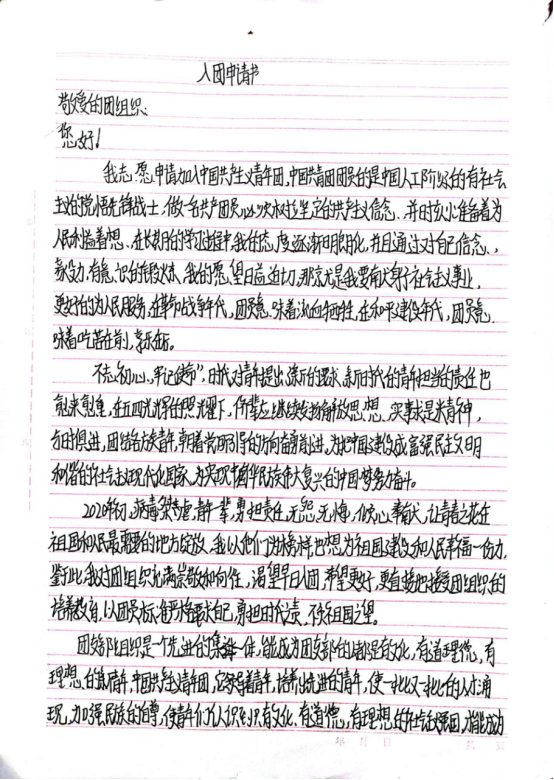 入团申请书
敬爱的团组织:
您好!
我志愿申请加入中国共产主义青年团,中国共青团团员的是中国人工阶级的有社会
主义的觉悟先锋战士,做一名共产团员,必须树立坚定的共产主义信念、并时刻准备着为
人民利益着想、在长期的学习过程中,我的态度逐渐明朗化,并且通过对自己信念、
毅力、有意识的锻炼、我的愿望日益迫切,那就是我要献身社会主义事业,
更好的为人民服务,在革命战争年代,团员意味着流血牺牲,在和平建设年代,团员意
味着吃苦在前,享乐在后。
不忘初心、牢记使命”,时代对青年提出了新的要求,新时代的青年担当的责任也
越来越重,在五四光辉的照耀下,作辈应继续发扬解放思想,实事求是精神,
与时俱进,团结各族青年,朝着党所引得的方向奋勇前进,为把中国建设成富强民主文明
和谐的社会主义现代化国家,为实现中国华民族伟大复兴的中国梦努力奋斗。
2020年初,病毒肆虐,青年一辈,勇担责任,无怨,无悔,以侠心奉献,让青春之花在
祖国和人民最需要的地方绽放,我以他们为榜样,也想为祖国建设和人民幸福一份力,
鉴于此,我对团组织充满崇敬和向往,渴望早日入团,希望更好,更直接地接受团组织的
培养教育,以团员标准严格要求自己,勇担时代责、不负祖国之望。
团支部组织是一个先进的集体,能成为团支部的都是有文化,有道理德,有
理想的好青年,中国共产主义青年团,它领着青年,培养出先进的青年,使一批又一批的人才涌
现,加强民族的自尊,使青年们认识到有文化、有道德,有理想的社会主义强国,才能成为
年 月 日 第 页